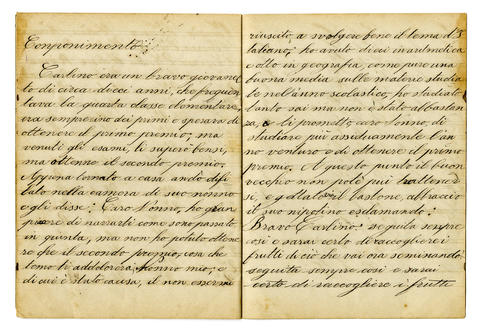 Componimento
Carlino era un bravo giovanet
to di circa dieci anni, che frequen
tava la quarta classe elementare,
era sempre uno dei primi e sperava di
ottenere il primo premio, ma
venuti gli esami, li superò bensì,
ma ottenne il secondo premio.
Appena tornato a casa andò difi
lato nella camera di suo nonno
e gli disse: Caro nonno, ho gran
piacere di narrarti come sono passato
in quinta, ma non ho potuto ottene
re che il secondo premio, cosa che
temo ti addolorerà, nonno mio; e
di cui è stato causa, il non essermi
riuscito a svolgere bene il tema d'I
taliano; ho avuto dieci in aritmetica
e otto in geografia, come pure una
buona media sulle materie studia
te nell'anno scolastico, ho studiato
tanto sai ma non è stato abbastan
za, e ti prometto, caro nonno, di
studiare più assiduamente l'an
no venturo e di ottenere il primo
premio. A questo punto il buon
vecchio non potè più trattener
si, e gettato il bastone, abbracciò
il suo nipotino esclamando:
Bravo Carlino: seguita sempre
così e sarai certo di raccogliere i
frutti di ciò che vai ora seminando!
seguita sempre così e sarai
certo di raccogliere i frutti